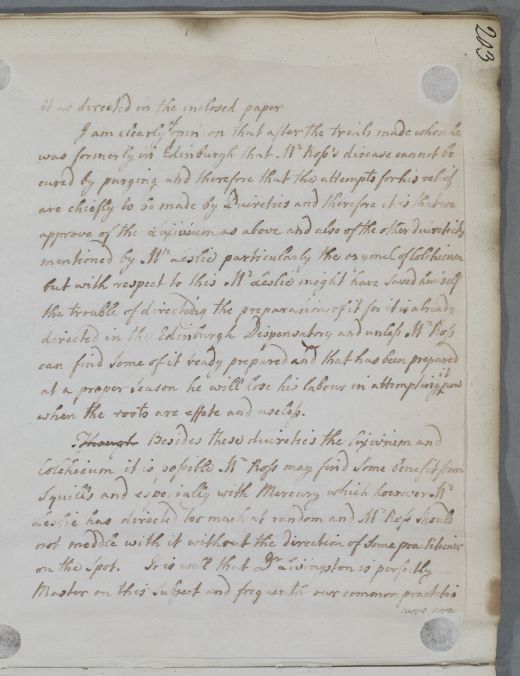 203
it as directed in the inclosed paper
I am clearly of opinion that after the trials made when he
was formerly in Edinburgh that Mr Ross's disease cannot be
cured by purging and therefore that the attempts for his relief
are chiefly to be made by Diuretics and therefore it is that we
approve of the Lixivium as above and also of the other diuretics
mentioned by Mr Leslie particularly the oxymel of Colchicum
but with respect to this Mr Leslie might have saved himself
the trouble of directing the preparation of it for it is already
directed in the Edinburgh Dispensatory and unless Mr Ross
can find some of it ready prepared and that has been prepared
at a proper season he will lose his labour in attempting it now
when the roots are effete and useless.
Besides these diuretics the Lixivium and
Colchicum it is possible Mr Ross may find some benefit from
Squills and especially with Mercury which however Mr
Leslie has directed too much at random and Mr Ross should
not meddle with it without the direction of some practitioner
on the spot. It is well that Dr Livingston is perfectly
Master on this subject and frequently our common practitio
ners are